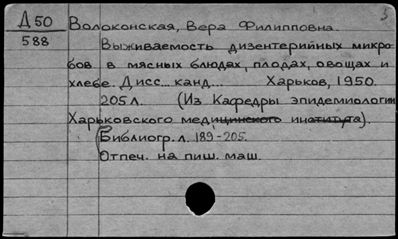 3
Д50
588
Волоконская, Вера Филипповна.
Выживаемость дизентерийных микро-
бов в мясных блюдах, плодах, овощах и
хлебе. Дисс... канд... Харьков, 1950.
205 л. (Из Кафедры эпидемиологии
Харьковского медицинского института).
(Библиогр. л. 189-205.
Отпеч. на пиш. маш.